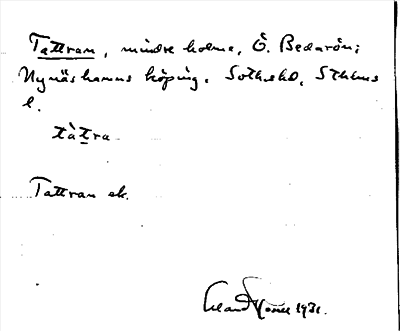 Tattran, mindre holme, Ö. Bedarön;
Nynäshamns köping, Sotholms hd, Sthlms
l.
tàtra
Tattran ek.
1931.